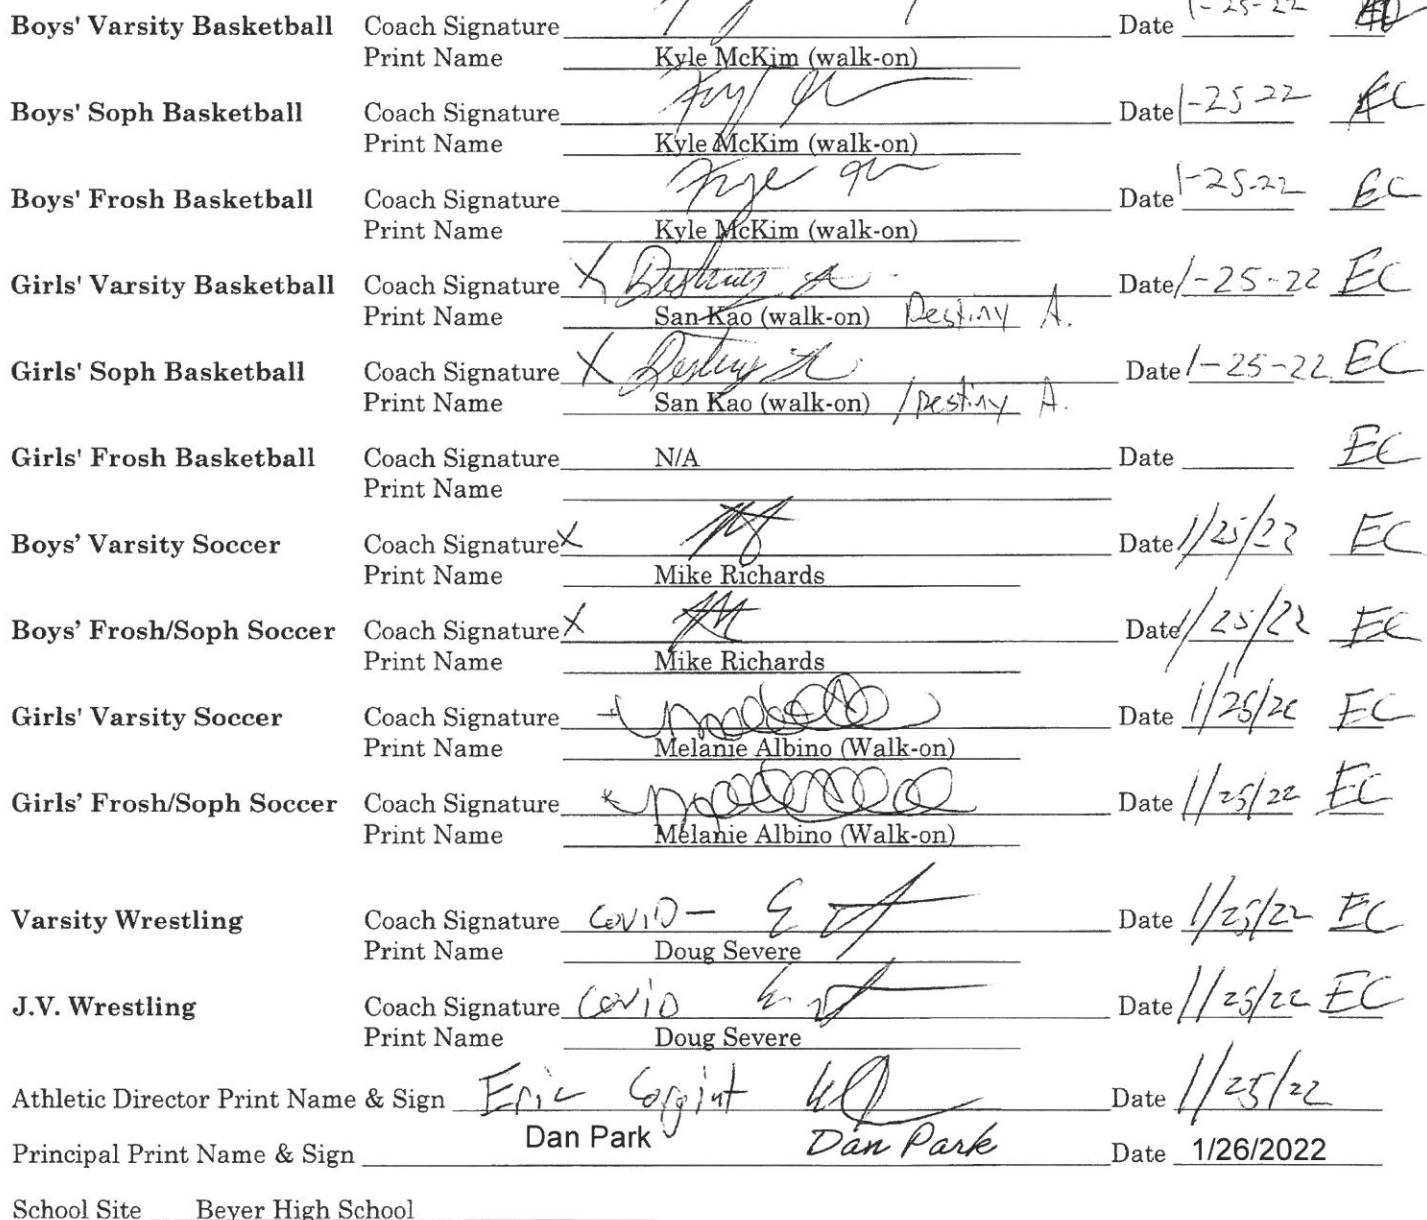 Boys' Varsity Basketball Coach Signature Date 1-25-22
Print Name Kyle McKim (walk-on)
Boys' Soph Basketball Coach Signature Date 1-25-22 EC
Print Name Kyle McKim (walk-on)
Boys' Frosh Basketball Coach Signature Date 1-25-22 EC
Print Name Kyle McKim (walk-on)
Girls' Varsity Basketball Coach Signature X Destiny A Date 1-25-22 EC
Print Name San Kao (walk-on) Destiny A.
Girls' Soph Basketball Coach Signature X Destiny A Date 1-25-22 EC
Print Name San Kao (walk-on) /Destiny A.
Girls' Frosh Basketball Coach Signature N/A Date EC
Print Name
Boys' Varsity Soccer Coach Signature X Date 1/25/22 EC
Print Name Mike Richards
Boys' Frosh/Soph Soccer Coach Signature X Date 1/25/22 EC
Print Name Mike Richards
Girls' Varsity Soccer Coach Signature Date 1/25/22 EC
Print Name Melanie Albino (Walk-on)
Girls' Frosh/Soph Soccer Coach Signature Date 1/25/22 EC
Print Name Melanie Albino (Walk-on)
Varsity Wrestling Coach Signature Covid - Date 1/25/22 EC
Print Name Doug Severe
J.V. Wrestling Coach Signature Covid Date 1/25/22 EC
Print Name Doug Severe
Athletic Director Print Name & Sign Eric Date 1/25/22
Principal Print Name & Sign Dan Park Dan Park Date 1/26/2022
School Site Beyer High School